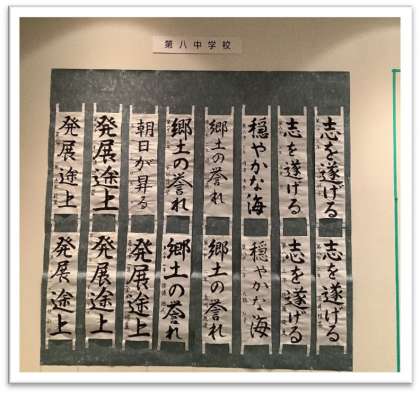 第八中学校
志を遂げる
志を遂げる
穏やかな海
郷土の誉れ
郷土の誉れ
朝日が昇る
発展途上
発展途上
志を遂げる
志を遂げる
穏やかな海
郷土の誉れ
郷土の誉れ
発展途上
発展途上
発展途上